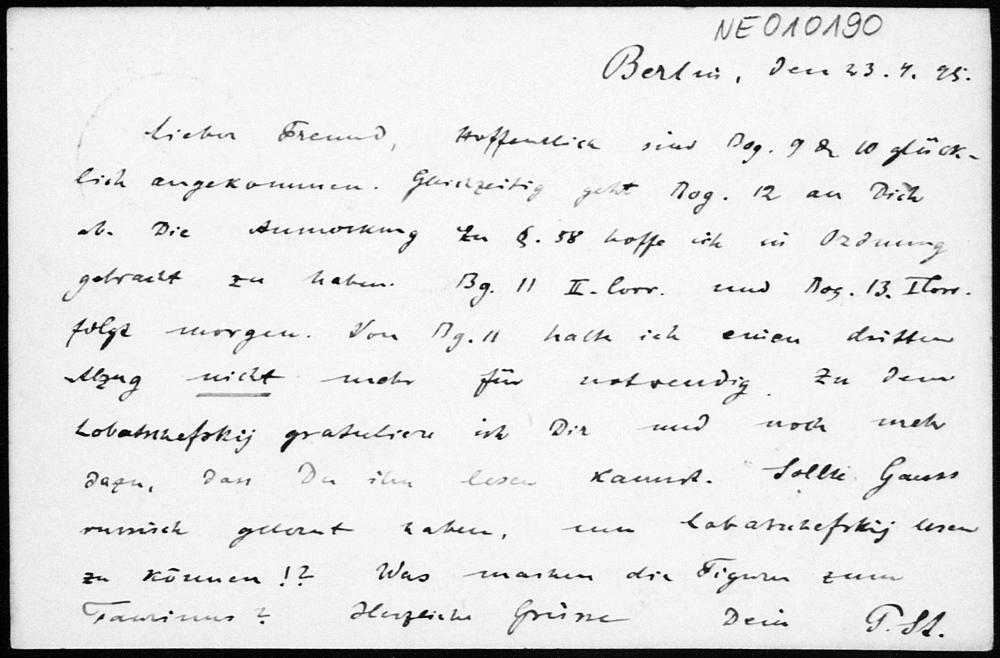 NE010190
Berlin, den 23. 4. 95.
Lieber Freund, Hoffentlich sind Bog. 9 & 10 glück-
lich angekommen. Gleichzeitig geht Bog. 12 an Dich
ab. Die Anmerkung zu §. 58 hoffe ich in Ordnung
gebracht zu haben. Bg. 11 II. Corr. und Bog. 13. I Corr.
folgt morgen. Von Bg. 11 halte ich einen dritten
Abzug nicht mehr für notwendig. Zu dem
Lobatschefskij gratuliere ich Dir und noch mehr
dazu, dass Du ihn lesen kannst. Sollte Gauss
russisch gelernt haben, um Lobatschefskij lesen
zu können!? Was machen die Figuren zum
Taurinus? Herzliche Grüsse Dein P. St.